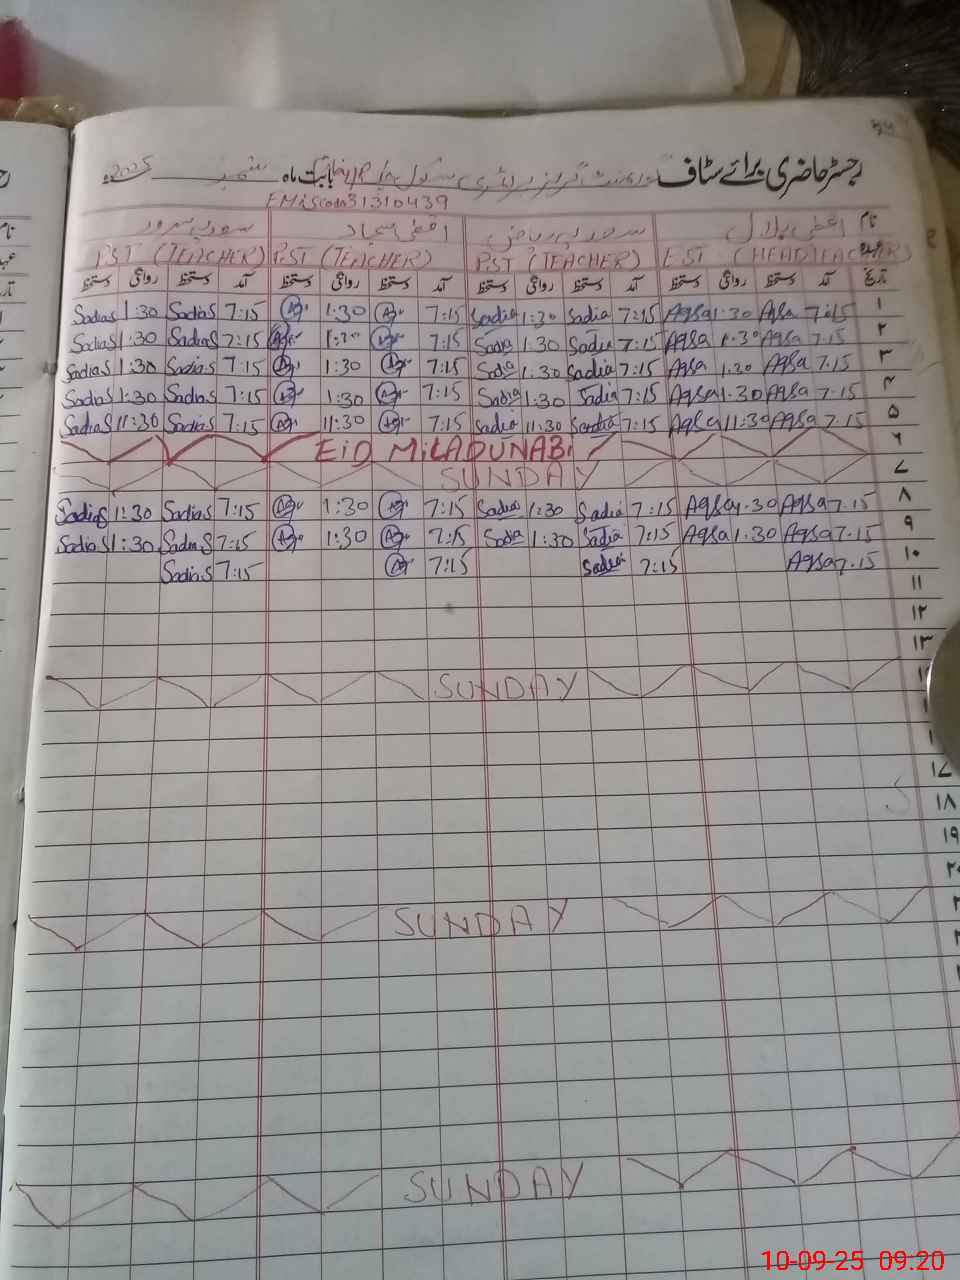 رجسٹر حاضری برائے سٹاف گورنمنٹ گرلز پرائمری سکول بابت ماہ ستمبر 2025ء
EMiscode31310439
نام اقصیٰ بلال سعدیہ ریاض اقصیٰ سجاد سعدیہ سرور
عہدہ PST (TEACHER) PST (TEACHER) PST (TEACHER) EST (HEAD TEACHER)
تاریخ آمد دستخط روانگی دستخط آمد دستخط روانگی دستخط آمد دستخط روانگی دستخط آمد دستخط روانگی دستخط
SadiaS 1:30 SadiaS 7:15 1:30 7:15 Sadia 1:30 Sadia 7:15 Aqsa 1:30 Aqsa 7:15 ۱
SadiaS 1:30 SadiaS 7:15 7:15 Sadia 1:30 Sadia 7:15 Aqsa 1.30 Aqsa 7.15 ۲
SadiaS 1:30 SadiaS 7:15 1:30 7:15 Sadia 1.30 Sadia 7:15 Aqsa 1.30 Aqsa 7.15 ۳
SadiaS 1:30 SadiaS 7:15 1:30 7:15 Sadia 1:30 Sadia 7:15 Aqsa 1.30 Aqsa 7.15 ۴
SadiaS 11:30 SadiaS 7:15 11:30 7:15 Sadia 11:30 Sadia 7:15 Aqsa 11:30 Aqsa 7.15 ۵
EiD MiLADUNABi ۶
SUNDAY ۷
SadiaS 1:30 SadiaS 7:15 1:30 7:15 Sadia 1:30 Sadia 7:15 Aqsa 1.30 Aqsa 7.15 ۸
SadiaS 1:30 SadiaS 7:15 1:30 7:15 Sadia 1:30 Sadia 7:15 Aqsa 1.30 Aqsa 7.15 ۹
SadiaS 7:15 7:15 Sadia 7:15 Aqsa 7.15 ۱۰
۱۱
۱۲
۱۳
SUNDAY
۱۷
۱۸
۱۹
SUNDAY
SUNDAY
10-09-25 09:20